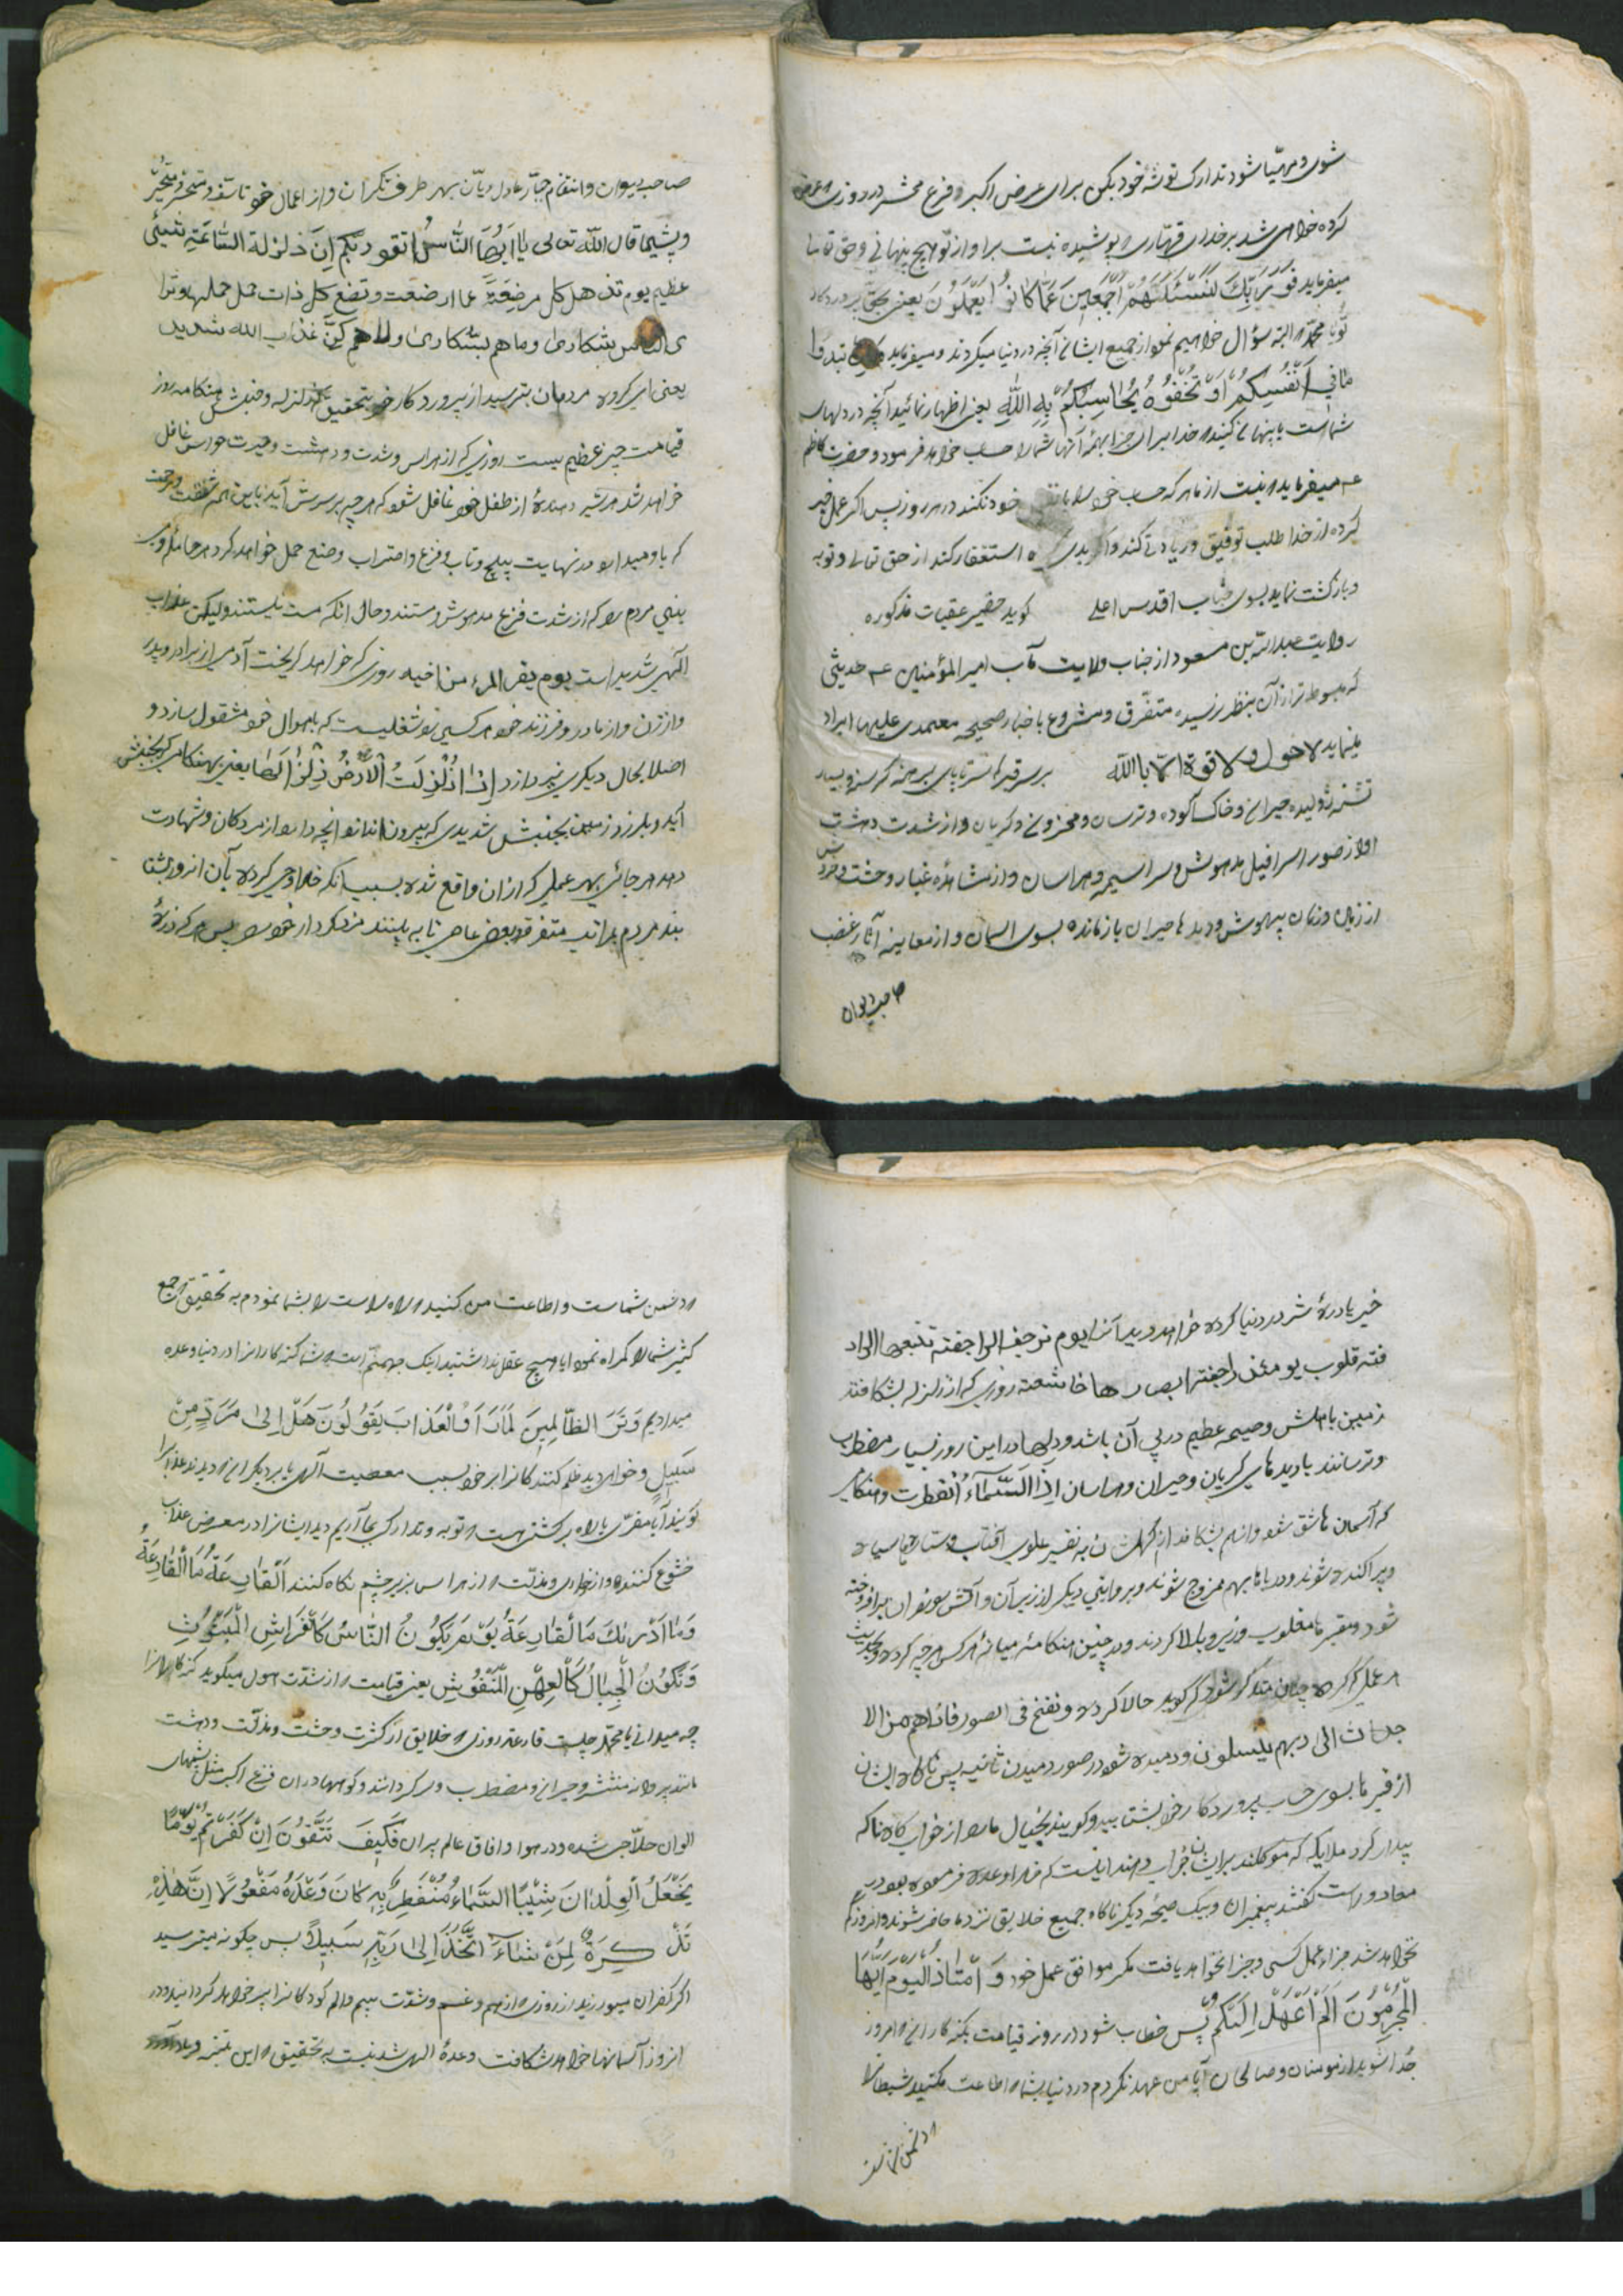 شوی و مهیا شو و تدارک توشه خود بکن برای عرض اکبر و فزع محشر در روزی که عرض
کرده خواهی شد بر خدای قهاری که پوشیده نیست بر او از تو هیچ پنهانی و حق تعالی
میفرماید فَوَرَبِّكَ لَنَسْئَلَنَّهُمْ أَجْمَعِينَ عَمَّا كَانُوا يَعْمَلُونَ یعنی بحق پروردگار
تو یا محمد که البته سؤال خواهیم نمود از جمیع ایشان آنچه در دنیا میکردند و میفرماید تبدوا
مافي أَنْفُسِكُمْ أَوْ تُخْفُوهُ يُحَاسِبْكُمْ بِهِ اللَّهِ یعنی اظهار نمائید آنچه در دلهای
شماست یا پنهان کنید خدا برای جزا بهمه آنها شما را حساب خواهد فرمود و حضرت کاظم
ع میفرماید که نیست از ما هر که حساب خود نکند در هر روز پس اگر عمل خیر
کرده از خدا طلب توفیق و زیادتی کند و اگر بدی استغفار کند از حق تعالی و توبه
و بازگشت نماید بسوی جناب اقدس اعلی گوید حقیر عقبات مذکوره
روایت عبدالله بن مسعود از جناب ولایت مآب امیرالمؤمنین ع حدیثی
که مبسوط تر از آن بنظر نرسیده متفرق و مشروع باخبار صحیحه معتمدی علیها ایراد
مینماید لا حول ولا قوة الا بالله بر سر قبر سر تا پای برهنه گرسنه و بسیار
تشنه ژولیده حیران و خاک آلوده و ترسان و محزون و گریان و از شدت دهشت
اواز صور اسرافیل مدهوش و سراسیمه و هراسان و از مشاهده غبار وحشت
از زمین و زمان بیهوش و دیدها حیران بازمانده بسوی آسمان و از معاینه آثار غضب
صاحب دیوان
صاحب دیوان و انتقام جبار عادل دیان بهر طرف نگران و از اعمال خود تاسف و تحسر و متحیر
و پشیمان قال الله تعالی یا ایها الناس اتقو ربکم ان زلزلة الساعة شیئی
عظیم یوم تذهل کل مرضعة عما ارضعت وتضع کل ذات حمل حملها وترا
ی الناس بشکاری وما هم بشکاری ولکن عذاب الله شدید
یعنی ای گروه مردمان بترسید از پروردگار خود بتحقیق که زلزله و جنبش هنگامه روز
قیامت چیز عظیم یست روزی که از هراس و شدت و دهشت و حیرت حواس غافل
خواهد شد هر شیر دهندهٔ از طفل خود غافل شود که هر چه بر سرش آید باین همه شفقت و رحمت
که باو میدارد و در نهایت پیچ و تاب و فزع و اضتراب وضع حمل خواهد کرد هر حامله و
بینی مردم را که از شدت فزع مدهوش و مستند و حال انکه مست نیستند ولیکن عذاب
الهی شدید است یوم یفر المرء من اخیه روزی که خواهد گریخت آدمی از برادر و پدر
و از زن و از مادر و فرزند خود هر کسی را شغلیست که باهوال خود مشغول سازد و
اصلا بحال دیگری نپردازد إِذَا زُلْزِلَتْ الْأَرْضُ زِلْزَالَهَا یعنی بهنگامی که بجنبش
آید و بلرزد زمین بجنبش شدیدی که بیرون اندازد انچه دارد از مردگان و شهادت
دهد هر جائی بهر عملی که از ان واقع شده بسبب انکه خدا وحی کرده بآن انروز بشتا
بند مردم بمراتب متفرقه بعرض عام تا به بینند مزد کردار خود پس هر که ذرهٔ
خیر یا ذرهٔ شر در دنیا کرده خواهد دید آنرا یوم ترجف الراجفة تتبعها الراد
فة قلوب یومئذ راجفة ابصارها خاشعة روزی که از زلزله بشکافد
زمین باهلش و صیحه عظیم در پی آن باشد و دلها در این روز بسیار مضطرب
و ترسانند با دیدهای گریان و حیران و هراسان إِذَا السَّمَاءُ انْفَطَرَت و هنگامی
که آسمان ها شق شود و از هم بشکافد از کهکشان به تقصیر علوی آفتاب و ستارهها سیاه
و پراکنده شوند و دریاها بهم ممزوج شوند و بروایتی دیگر از زیر آن و آتش سوزان برافروخته
شود و مقبرها مغلوب و زیر و بالا گردند و در چنین هنگامه میانهٔ هر کس هر چه کرده
هر عملی که کرده چنان متذکر شود که گوید حالا کرده و نفخ فی الصور فاذاهم من الا
جداث الی ربهم ینسلون و دمیده شود در صور دمیدن ثانیه پس ناگاه ایشان
از قبرها بسوی حساب پروردگار خود بشتابید و گویند بخیال ما را از خوابگاه ما که
بیدار کرد ملایکه که موکلند برایشان جواب دهند اینست که خدا وعده فرموده بود در
معاد و راست گفتند پیغمبران و بیک صیحهٔ دیگر ناگاه جمیع خلایق نزد ما حاضر شوند و انروز کم
نخواهد شد جزاء عمل کسی و جزا نخواهد یافت مگر موافق عمل خود وَامْتَازُ الْيَوْمَ أَيُّهَا
الْمُجْرِمُونَ أَلَمْ أَعْهَدْ إِلَيْكُمْ پس خطاب شود در روز قیامت بگنه کاران که امروز
جدا شوید از مومنان و صالحان آیا من عهد نکردم در دنیا بشما که اطاعت مکنید شیطانرا
که دشمن شماست و اطاعت من کنید که راه راست را بشما نمودم به تحقیق که جمع
کثیر شما را گمراه نمود ایا هیچ عقل نداشتید اینک جهنم است که بشما گنه کارانرا در دنیا وعده
میدادیم وَتَرَ الظَّالِمِينَ لَمَّا رَأَوُ الْعَذَابَ يَقُولُونَ هَلْ إِلَى مَرَدٍّ مِنْ
سَبِيلٍ و خواهی دید ظلم کنندگانرا بر خود بسبب معصیت الهی یا بر دیگران که دیدند عذابرا
گویند آیا مفری یا راه برگشتن هست که توبه و تدارک بجا آریم دید ایشانرا در معرض عذاب
خشوع کننده و از خواری و مذلت و از هراس بزیر چشم نگاه کنند اَلْقَارِعَةُ مَا الْقَارِعَةُ
وَمَا أَدْرَيكَ مَا الْقَارِعَةُ يَوْمَ يَكُونُ النَّاسُ كَالْفَرَاشِ الْمَبْثُوثِ
وَتَكُونُ الْجِبَالُ كَالْعِهْنِ الْمَنْفُوشِ یعنی قیامت که از شدت هول میگوید گنه کارانرا
چه میدانی یا محمد چیست قارعة روزی که خلایق از کثرت وحشت و مذلت و دهشت
مانند پروانه منتشر و حیران و مضطرب و سرگردانند و کوهها در ان فزع اکبر مثل پشمهای
الوان حلاجی شده و در هوا و افاق عالم پران فَكَيْفَ تَتَّقُونَ إِنْ كَفَرْتُمْ يَوْمًا
يَجْعَلُ الْوِلْدَانَ شِيْبًا السَّمَاءُ مُنْفَطِرٌ بِهِ كَانَ وَعْدُهُ مَفْعُولًا إِنَّ هَذِهِ
تَذْكِرَةٌ لِمَنْ شَاءَ اتَّخَذَ إِلَى رَبِّهِ سَبِيلًا پس چگونه میترسید
اگر کفران میورزید از روزی که از هم و غم و شدت بیم و الم کودکانرا پیر خواهد گردانید و در
انروز آسمانها خواهد شکافت وعدهٔ الهی شدنیست به تحقیق که این تنبیه و
که دشمن شماست